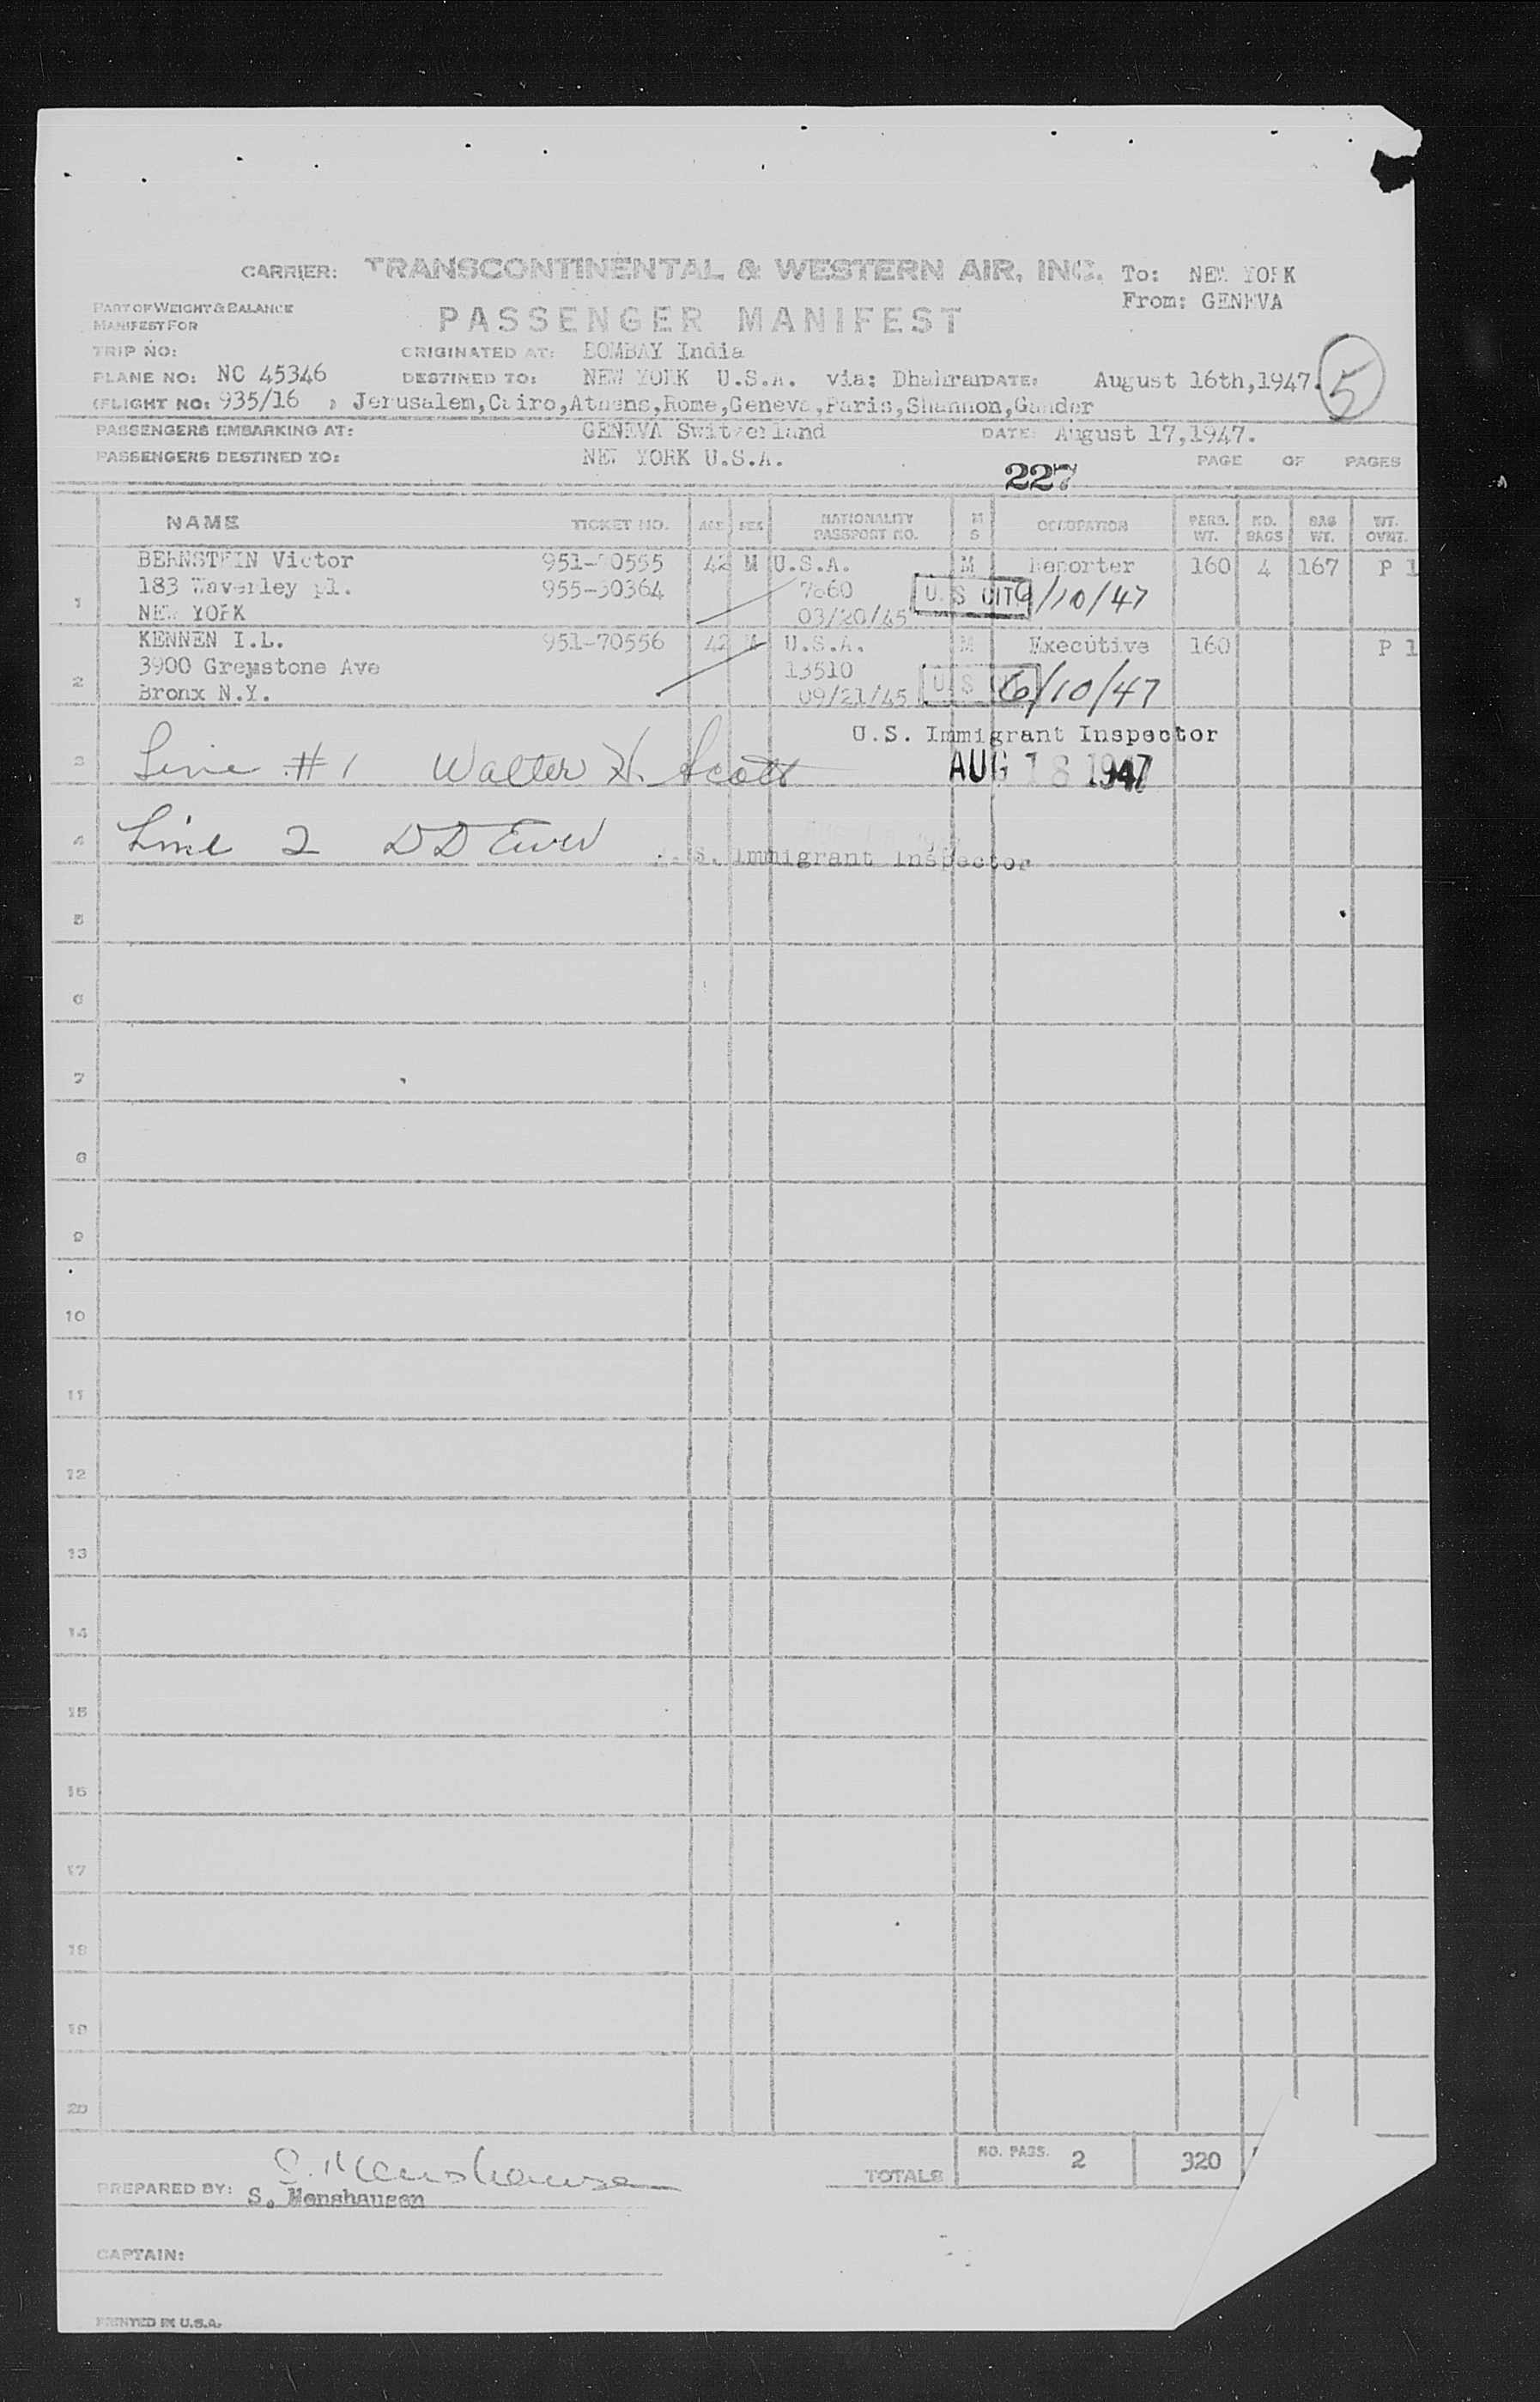 CARRIER: TRANSCONTINENTAL & WESTERN AIR, INC. To: NEW YORK
From: GENEVA
PART OF WEIGHT & BALANCE
MANIFEST FOR
PASSENGER MANIFEST
TRIP NO: ORIGINATED AT: BOMBAY India
PLANE NO: NC 45346 DESTINED TO: NEW YORK U.S.A. via: Dhahran DATE: August 16th,1947.
(FLIGHT NO: 935/16 ) Jerusalem,Cairo,Athens,Rome,Geneva,Paris,Shannon,Gander
5
PASSENGERS EMBARKING AT: GENEVA Switzerland DATE: August 17,1947.
PASSENGERS DESTINED TO: NEW YORK U.S.A. PAGE OF PAGES
227
NAME TICKET NO. AGE SEX NATIONALITY PASSPORT NO. M S OCCUPATION PERS. WT. NO. BAGS BAG WT. WT. OVNT.
BERNSTEIN Victor 951-70555 42 M U.S.A. M Reporter 160 4 167 P 1
1 183 Waverley pl. 955-30364 7860 U. S CIT 6/10/47
NEW YORK 03/20/45
KENNEN I.L. 951-70556 42 M U.S.A. M Executive 160 P 1
3900 Greystone Ave 13510
2 Bronx N.Y. 09/21/45 U S 6/10/47
U.S. Immigrant Inspector
3 Line #1 Walter H. Scott AUG 18 1947
4 Line 2 DD
U.S. Immigrant Inspector
5
6
7
8
9
10
11
12
13
14
15
16
17
18
19
20
TOTALS NO. PASS. 2 320
S. Menshausen
PREPARED BY: S. Menshausen
CAPTAIN:
PRINTED IN U.S.A.